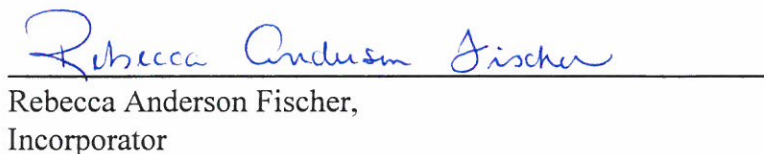 Rebecca Anderson Fischer
Rebecca Anderson Fischer,
Incorporator